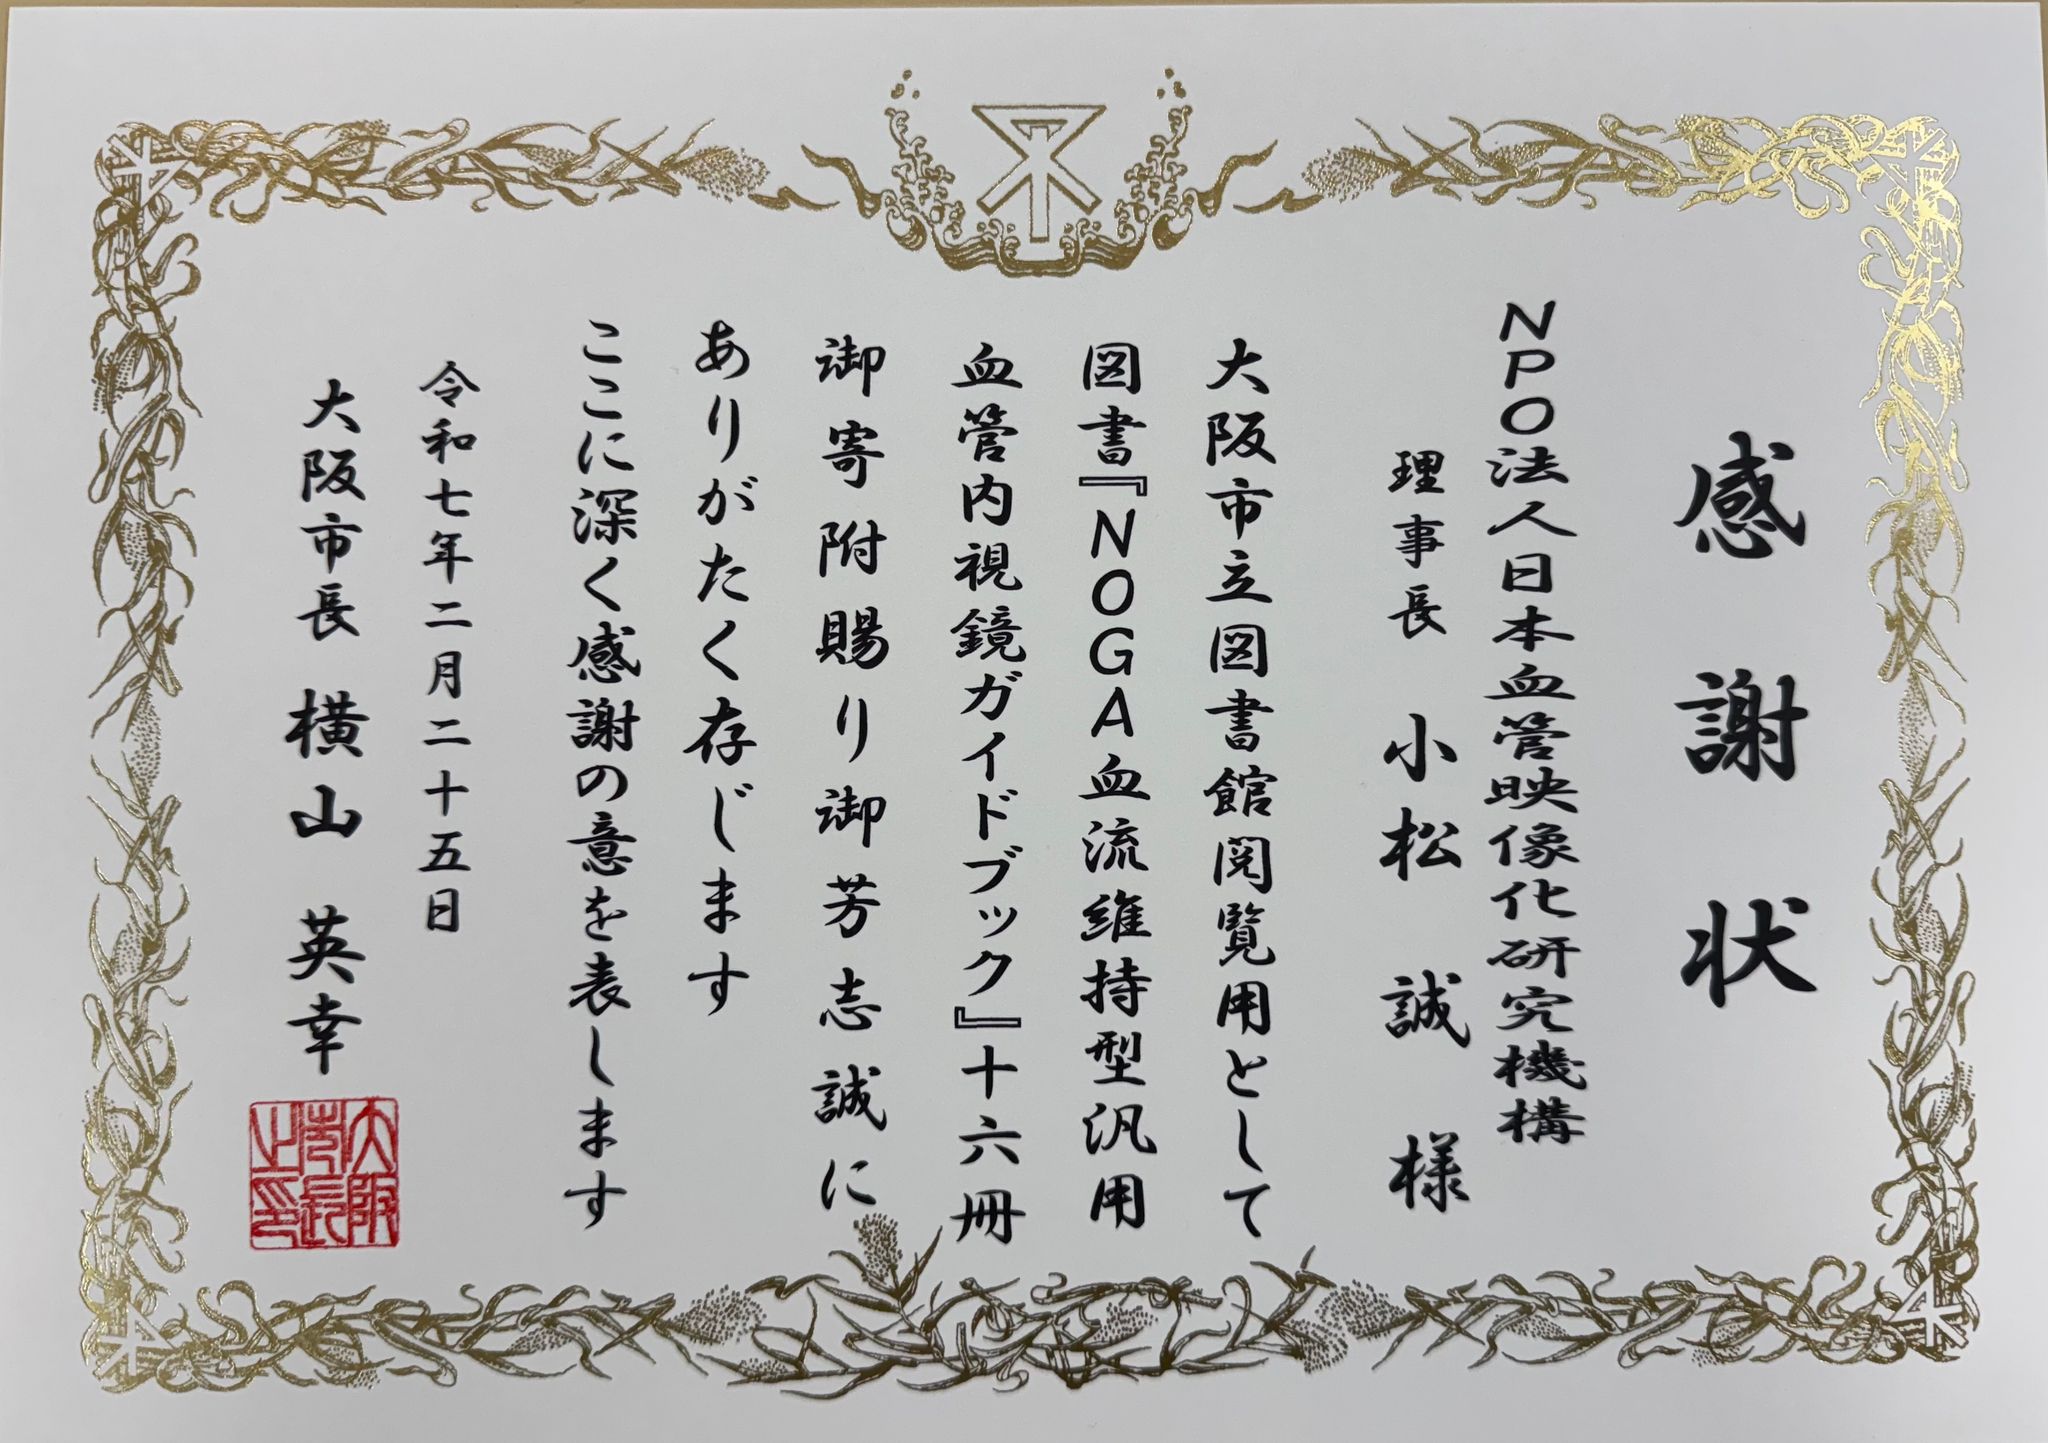 感謝状
NPO法人日本血管映像化研究機構
理事長 小松 誠 様
大阪市立図書館閲覧用として
図書『NOGA血流維持型汎用
血管内視鏡ガイドブック』十六冊
御寄附賜り御芳志誠に
ありがたく存じます
ここに深く感謝の意を表します
令和七年二月二十五日
大阪市長 横山 英幸
大阪
市長
之印